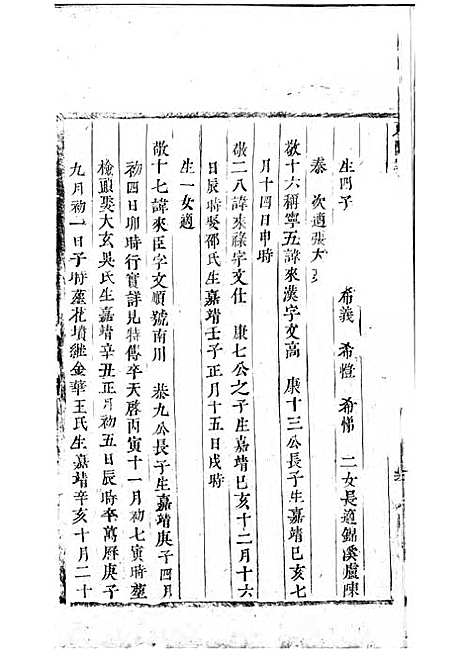 生四子 希義 希燈 希悌 二女長適錦溪盧陳
泰 次適張大
敬十六稱寧五諱來漢字文高 康十三公長子生嘉靖己亥七
月十四日申時
敬二八諱來祿字文仕 康七公之子生嘉靖己亥十二月十六
日辰時娶邵氏生嘉靖壬子正月十五日戌時
生一女適
敬十七諱來臣字文順號南川 恭九公長子生嘉靖庚子四月
初四日卯時行實詳見特傳卒天啓丙寅十一月初七寅時塟
檢頭娶大玄吳氏生嘉靖辛丑正月初五日辰時卒萬曆庚子
九月初一日子時塟花墳継金華王氏生嘉靖辛亥十月二十